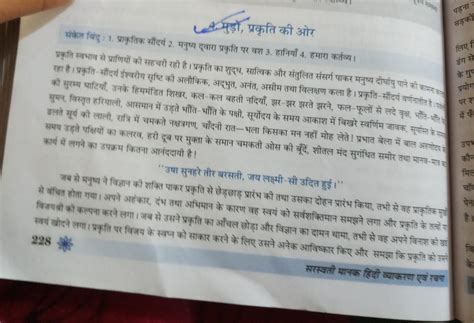 मुड़ो, प्रकृति की ओर
संकेत बिंदु : 1. प्राकृतिक सौंदर्य 2. मनुष्य द्वारा प्रकृति पर वश 3. हानियाँ 4. हमारा कर्तव्य।
प्रकृति स्वभाव से प्राणियों की सहचरी रही है। प्रकृति का शुद्ध, सात्विक और संतुलित संसर्ग पाकर मनुष्य दीर्घायु पाने की कामना करता
रहा है। प्रकृति-सौंदर्य ईश्वरीय सृष्टि की अलौकिक, अद्भुत, अनंत, असीम तथा विलक्षण कला है। प्रकृति-सौंदर्य वर्णनातीत है।
की सुरम्य घाटियाँ, उनके हिममंडित शिखर, कल-कल बहती नदियाँ, झर-झर झरते झरने, फल-फूलों से लदे वृक्ष, भाँति-भाँति के
सुमन, विस्तृत हरियाली, आसमान में उड़ते भाँति-भाँति के पक्षी, सूर्योदय के समय आकाश में बिखरे स्वर्णिम जावक, सूर्यास्त के समय
ढलते सूर्य को लाली, रात्रि में चमकते नक्षत्रगण, चाँदनी रात—भला किसका मन नहीं मोह लेते! प्रभात बेला में बाल अरुणोदय के
समय उड़ते पक्षियों का कलरव, हरी दूब पर मुक्ता के समान चमकती ओस की बूँदें, शीतल मंद सुगंधित समीर तथा मानव-मात्र का
कार्य में लगने का उपक्रम कितना आनंददायी है!
''उषा सुनहरे तीर बरसती, जय लक्ष्मी-सी उदित हुई।''
जब से मनुष्य ने विज्ञान की शक्ति पाकर प्रकृति से छेड़छाड़ प्रारंभ की तथा उसका दोहन प्रारंभ किया, तभी से वह प्राकृतिक सुखों
से वंचित होता गया। अपने अहंकार, दंभ तथा अभिमान के कारण वह स्वयं को सर्वशक्तिमान समझने लगा और प्रकृति के तत्वों पर
विजयश्री की कल्पना करने लगा। जब से उसने प्रकृति का आँचल छोड़ा और विज्ञान का दामन थामा, तभी से वह अपने विनाश को
स्वयं खोदने लगा। प्रकृति पर विजय के स्वप्न को साकार करने के लिए उसने अनेक आविष्कार किए और समझा कि प्रकृति को उसने
228
सरस्वती मानक हिंदी व्याकरण एवं रचना